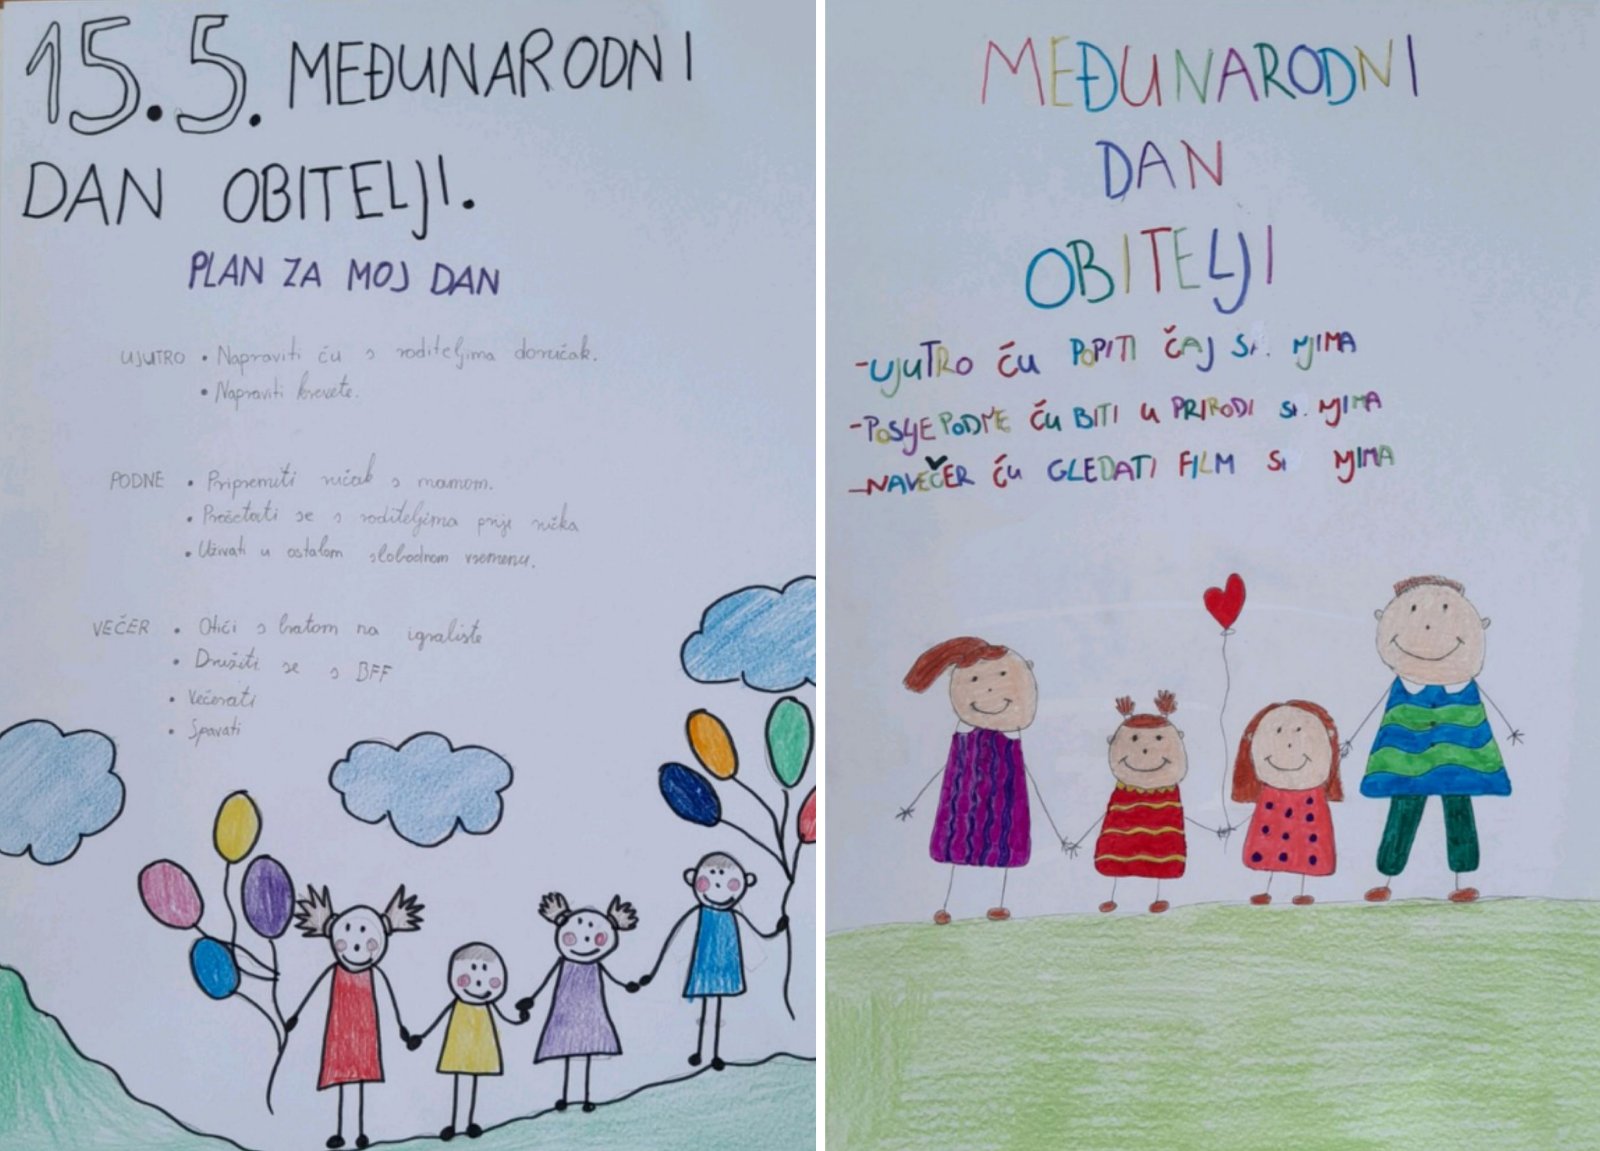 15.5. MEĐUNARODNI
DAN OBITELJI.
PLAN ZA MOJ DAN
UJUTRO • Napraviti ću s roditeljima doručak.
• Napraviti krevete.
PODNE • Pripremiti ručak s mamom.
• Prošetati se s roditeljima prije ručka
• Uživati u ostalom slobodnom vremenu.
VEČER • Otići s bratom na igralište
• Družiti se s BFF
• Večerati
• Spavati
MEĐUNARODNI
DAN
OBITELJI
-UJUTRO ĆU POPITI ČAJ S NJIMA
-POSLJEPODNE ĆU BITI U PRIRODI S NJIMA
-NAVEČER ĆU GLEDATI FILM S NJIMA